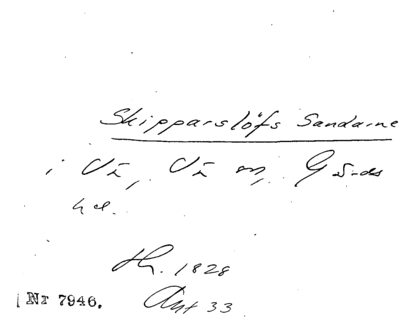 Skipparslöfs Sandarne
i Vä, Vä sn, Gärds
hd.
Th. 1828
Nr 7946. Ant 33